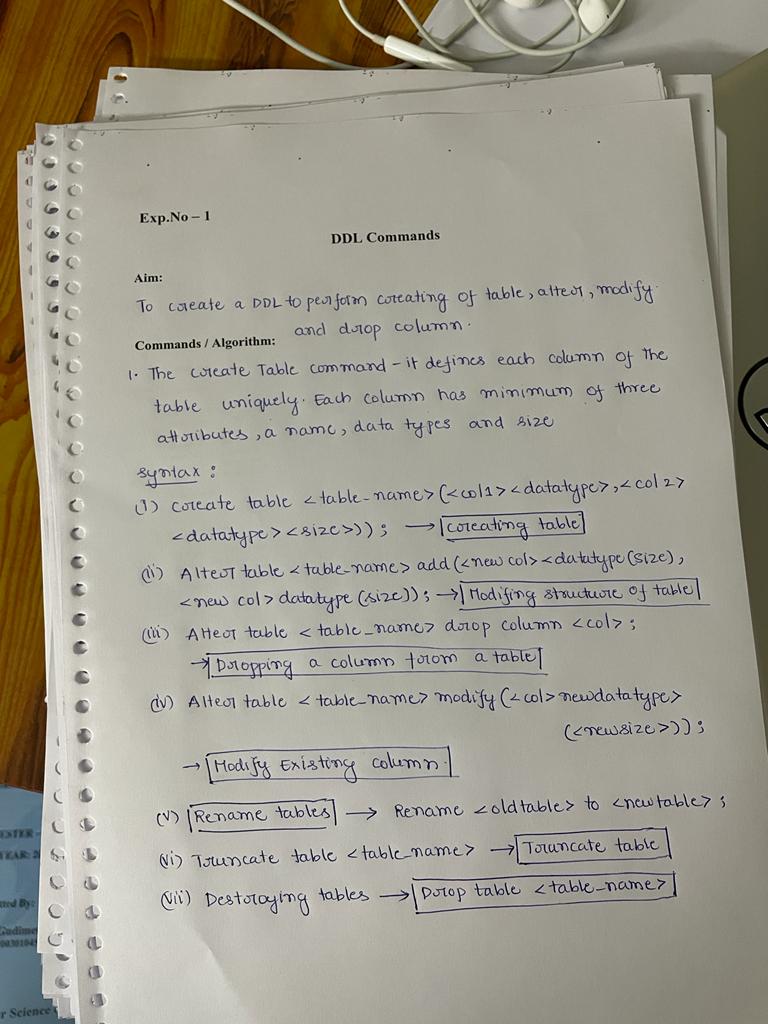 Exp.No – 1
DDL Commands
Aim:
To create a DDL to perform creating of table, alter, modify
and drop column.
Commands / Algorithm:
1. The create Table command - it defines each column of the
table uniquely. Each column has minimum of three
attributes, a name, data types and size
syntax :
(i) create table <table-name> (<col1> <datatype>, <col 2>
<datatype> <size>)); → creating table
(ii) Alter table <table-name> add (<new col> <datatype (size),
<new col> datatype (size)); → Modifing structure of table
(iii) Alter table <table_name> drop column <col>;
→ Dropping a column from a table
(iv) Alter table <table_name> modify (<col> newdatatype>
(<newsize>));
→ Modify Existing column.
(v) Rename tables → Rename <oldtable> to <newtable>;
(vi) Truncate table <table_name> → Truncate table
(vii) Destroying tables → Drop table <table_name>
ESTER -
YEAR: 2
tted By:
Gudime
r Science